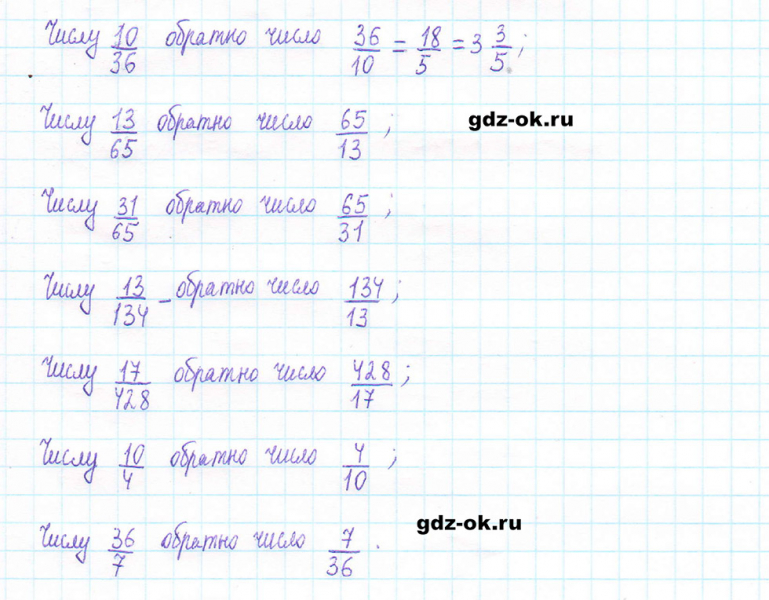 Числу 10/36 обратно число 36/10 = 18/5 = 3 3/5;
Числу 13/65 обратно число 65/13;
gdz-ok.ru
Числу 31/65 обратно число 65/31;
Числу 13/134 - обратно число 134/13;
Числу 17/428 обратно число 428/17;
Числу 10/4 обратно число 4/10;
gdz-ok.ru
Числу 36/7 обратно число 7/36.